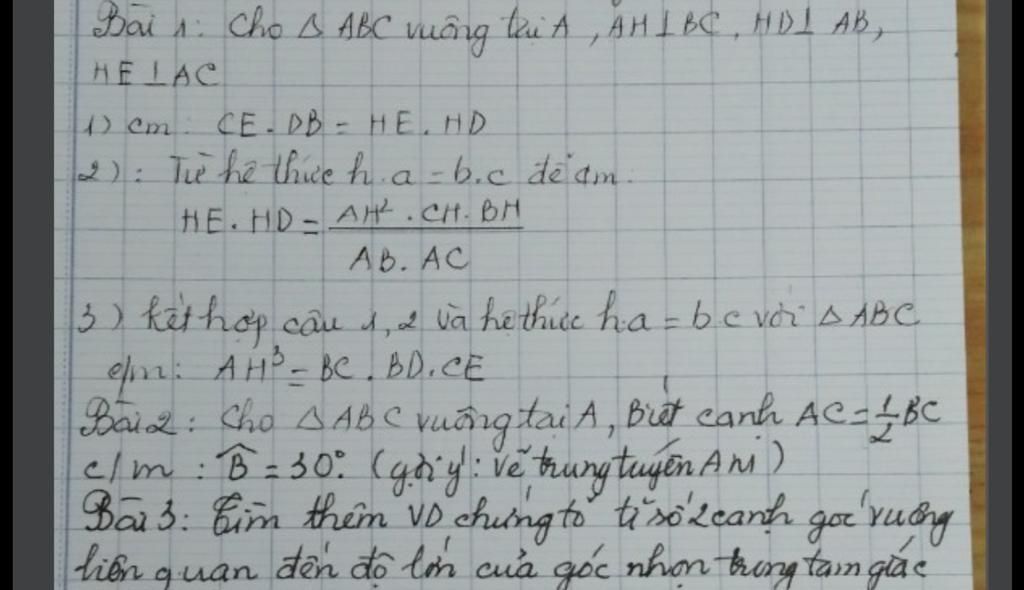 Bài 1: Cho △ ABC vuông tại A, AH⊥BC, HD⊥ AB,
HE⊥AC
1) cm: CE.DB = HE.HD
2): Từ hệ thức h.a = b.c để cm:
HE.HD = AH².CH.BH
AB.AC
3) kết hợp câu 1,2 và hệ thức h.a = b c với △ ABC
c/m: AH³ = BC.BD.CE
Bài 2: Cho △ABC vuông tại A, Biết cạnh AC = 1/2 BC
c/m: B̂ = 30°. (gợi ý: vẽ trung tuyến AM)
Bài 3: Tìm thêm VD chứng tỏ tỉ số 2 cạnh góc vuông
liên quan đến độ lớn của góc nhọn trong tam giác